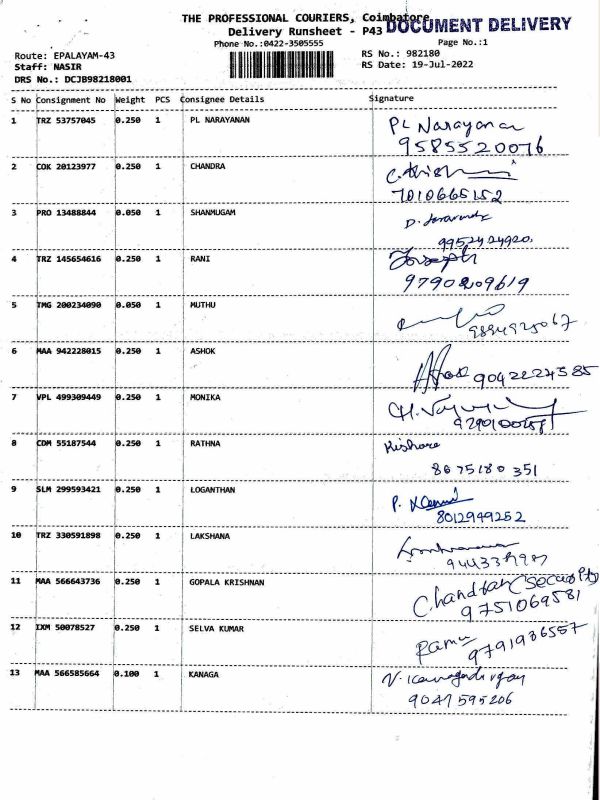 THE PROFESSIONAL COURIERS, Coimbatore
DOCUMENT DELIVERY
Delivery Runsheet - P43
Phone No.:0422-3505555
Page No.:1
Route: EPALAYAM-43
RS No.: 982180
Staff: NASIR
RS Date: 19-Jul-2022
DRS No.: DCJB98218001
S No Consignment No Weight PCS Consignee Details Signature
1 TRZ 53757045 0.250 1 PL NARAYANAN PL Narayanan
9585520076
2 COK 20123977 0.250 1 CHANDRA
7010665152
3 PRO 13488844 0.050 1 SHANMUGAM
9952424920.
4 TRZ 145654616 0.250 1 RANI Joseph
9790209619
5 TMG 200234090 0.050 1 MUTHU
9894925067
6 MAA 942228015 0.250 1 ASHOK Ashok 9042224585
7 VPL 499309449 0.250 1 MONIKA
8 CDM 55187544 0.250 1 RATHNA Kishore
8675180351
9 SLM 299593421 0.250 1 LOGANTHAN
8012949252
10 TRZ 330591898 0.250 1 LAKSHANA
11 MAA 566643736 0.250 1 GOPALA KRISHNAN
9751069581
12 IXM 50078527 0.250 1 SELVA KUMAR Ramu
9791986557
13 MAA 566585664 0.100 1 KANAGA
9047595206